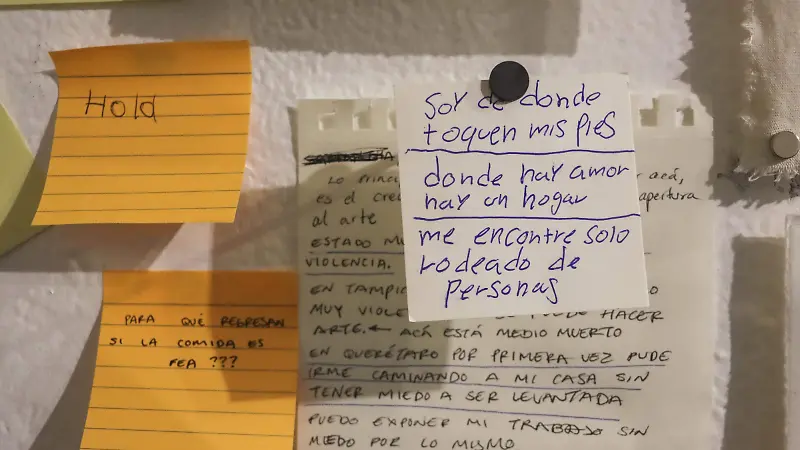 Hold
PARA QUÉ REGRESAN
SI LA COMIDA ES
FEA ???
Soy de donde
toquen mis pies
donde hay amor
hay un hogar
me encontre solo
rodeado de
personas
Lo
acá,
es el
apertura
al arte
ESTADO
VIOLENCIA.
EN
MUY
HACER
ARTE. ← ACÁ ESTÁ MEDIO MUERTO
EN QUERÉTARO POR PRIMERA VEZ PUDE
IRME CAMINANDO A MI CASA SIN
TENER MIEDO A SER LEVANTADA
PUEDO EXPONER MI TRABAJO SIN
MIEDO POR LO MISMO